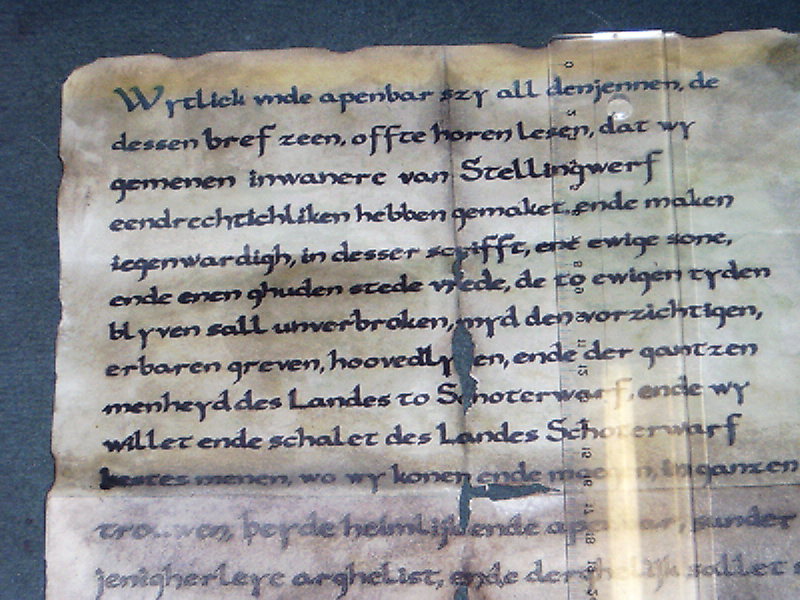 Wytlick vnde apenbar szy all denjennen, de
dessen bref zeen, offte horen lesen, dat wy
gemenen inwanere van Stellingwerf
eendrechtichliken hebben gemaket, ende maken
iegenwardigh, in desser scrifft, ene ewige sone,
ende enen ghuden stede vrede, de to ewigen tyden
blyven sall unverbroken, myd den vorzichtigen,
erbaren greven, hoovedlyen, ende der gantzen
menheyd des Landes to Schoterwerf, ende wy
willet ende schalet des Landes Schoterwarf
bestes menen, wo wy konen ende moegen, in ganzen
beyde heimlijk ende apenbar, sunder
jenigherleye arghelist, ende derghelijk sallet